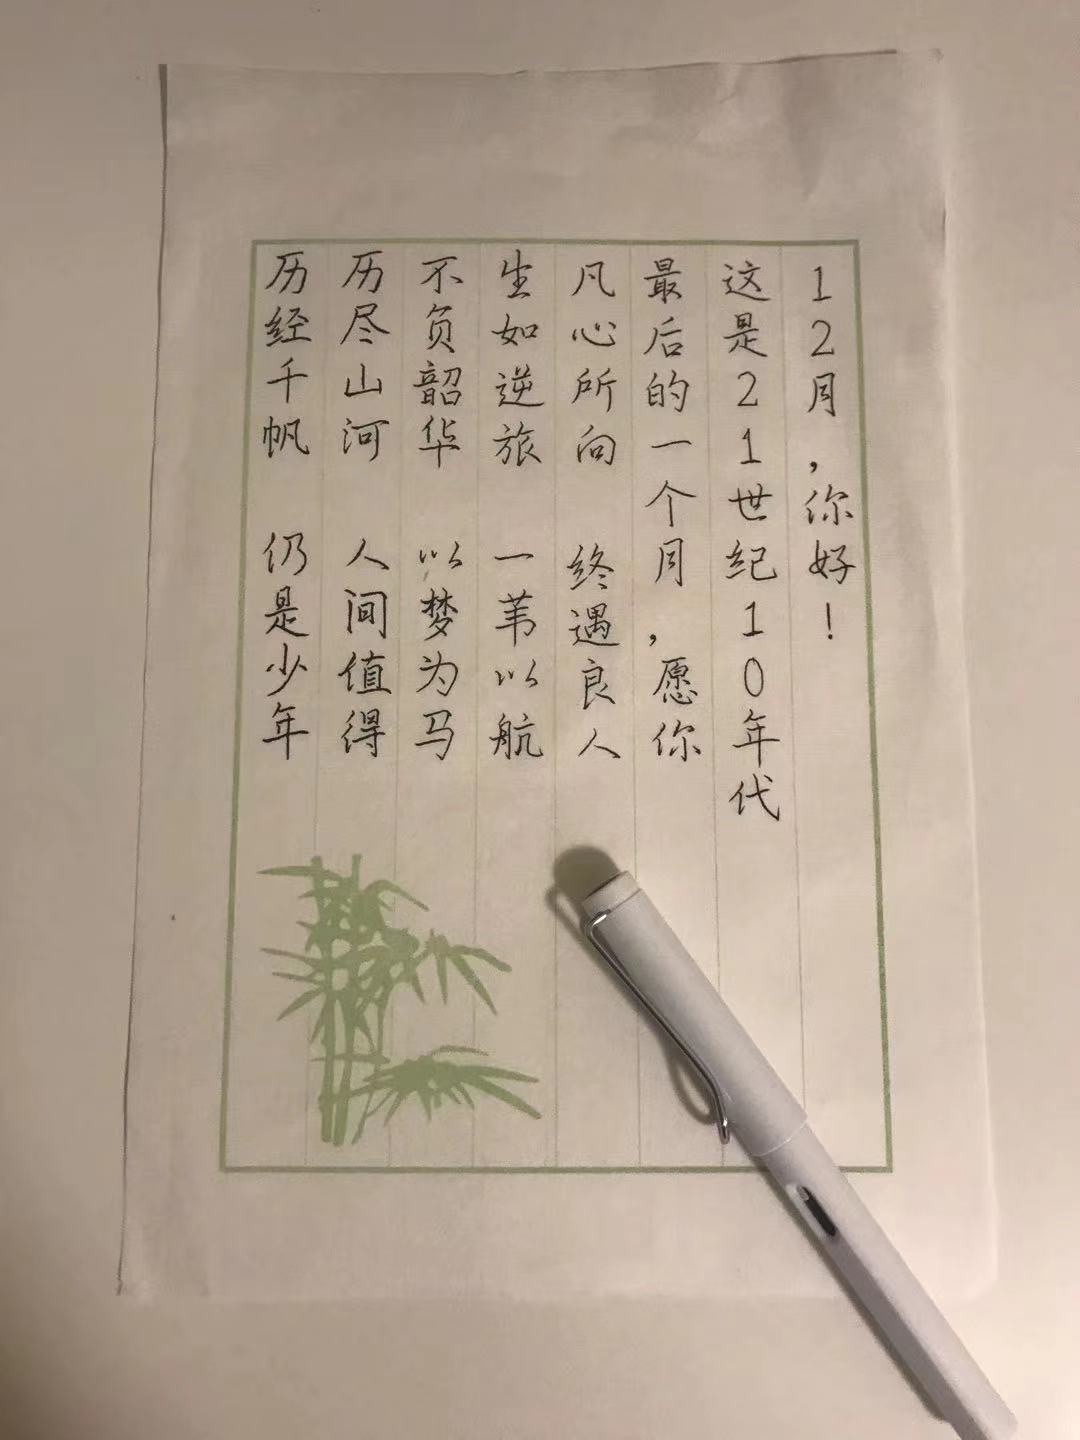 12月,你好!
这是21世纪10年代
最后的一个月,愿你
凡心所向 终遇良人
生如逆旅 一苇以航
不负韶华 以梦为马
历尽山河 人间值得
历经千帆 仍是少年